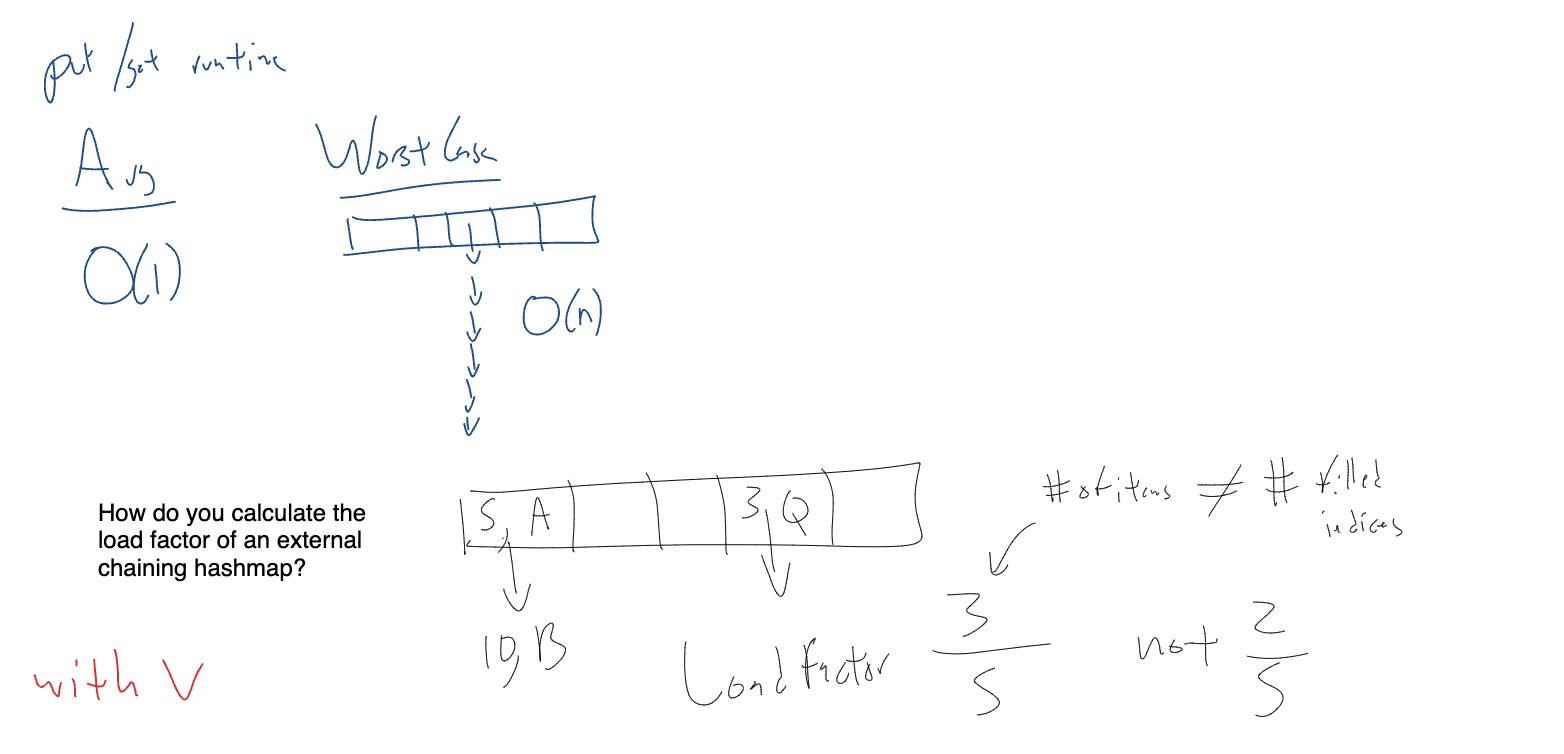 put/get runtime
Avg
Worst Case
O(1)
O(n)
How do you calculate the
load factor of an external
chaining hashmap?
5, A
3, Q
10, B
# of items ≠ # filled
indices
Load Factor
3
5
not
2
5
with V